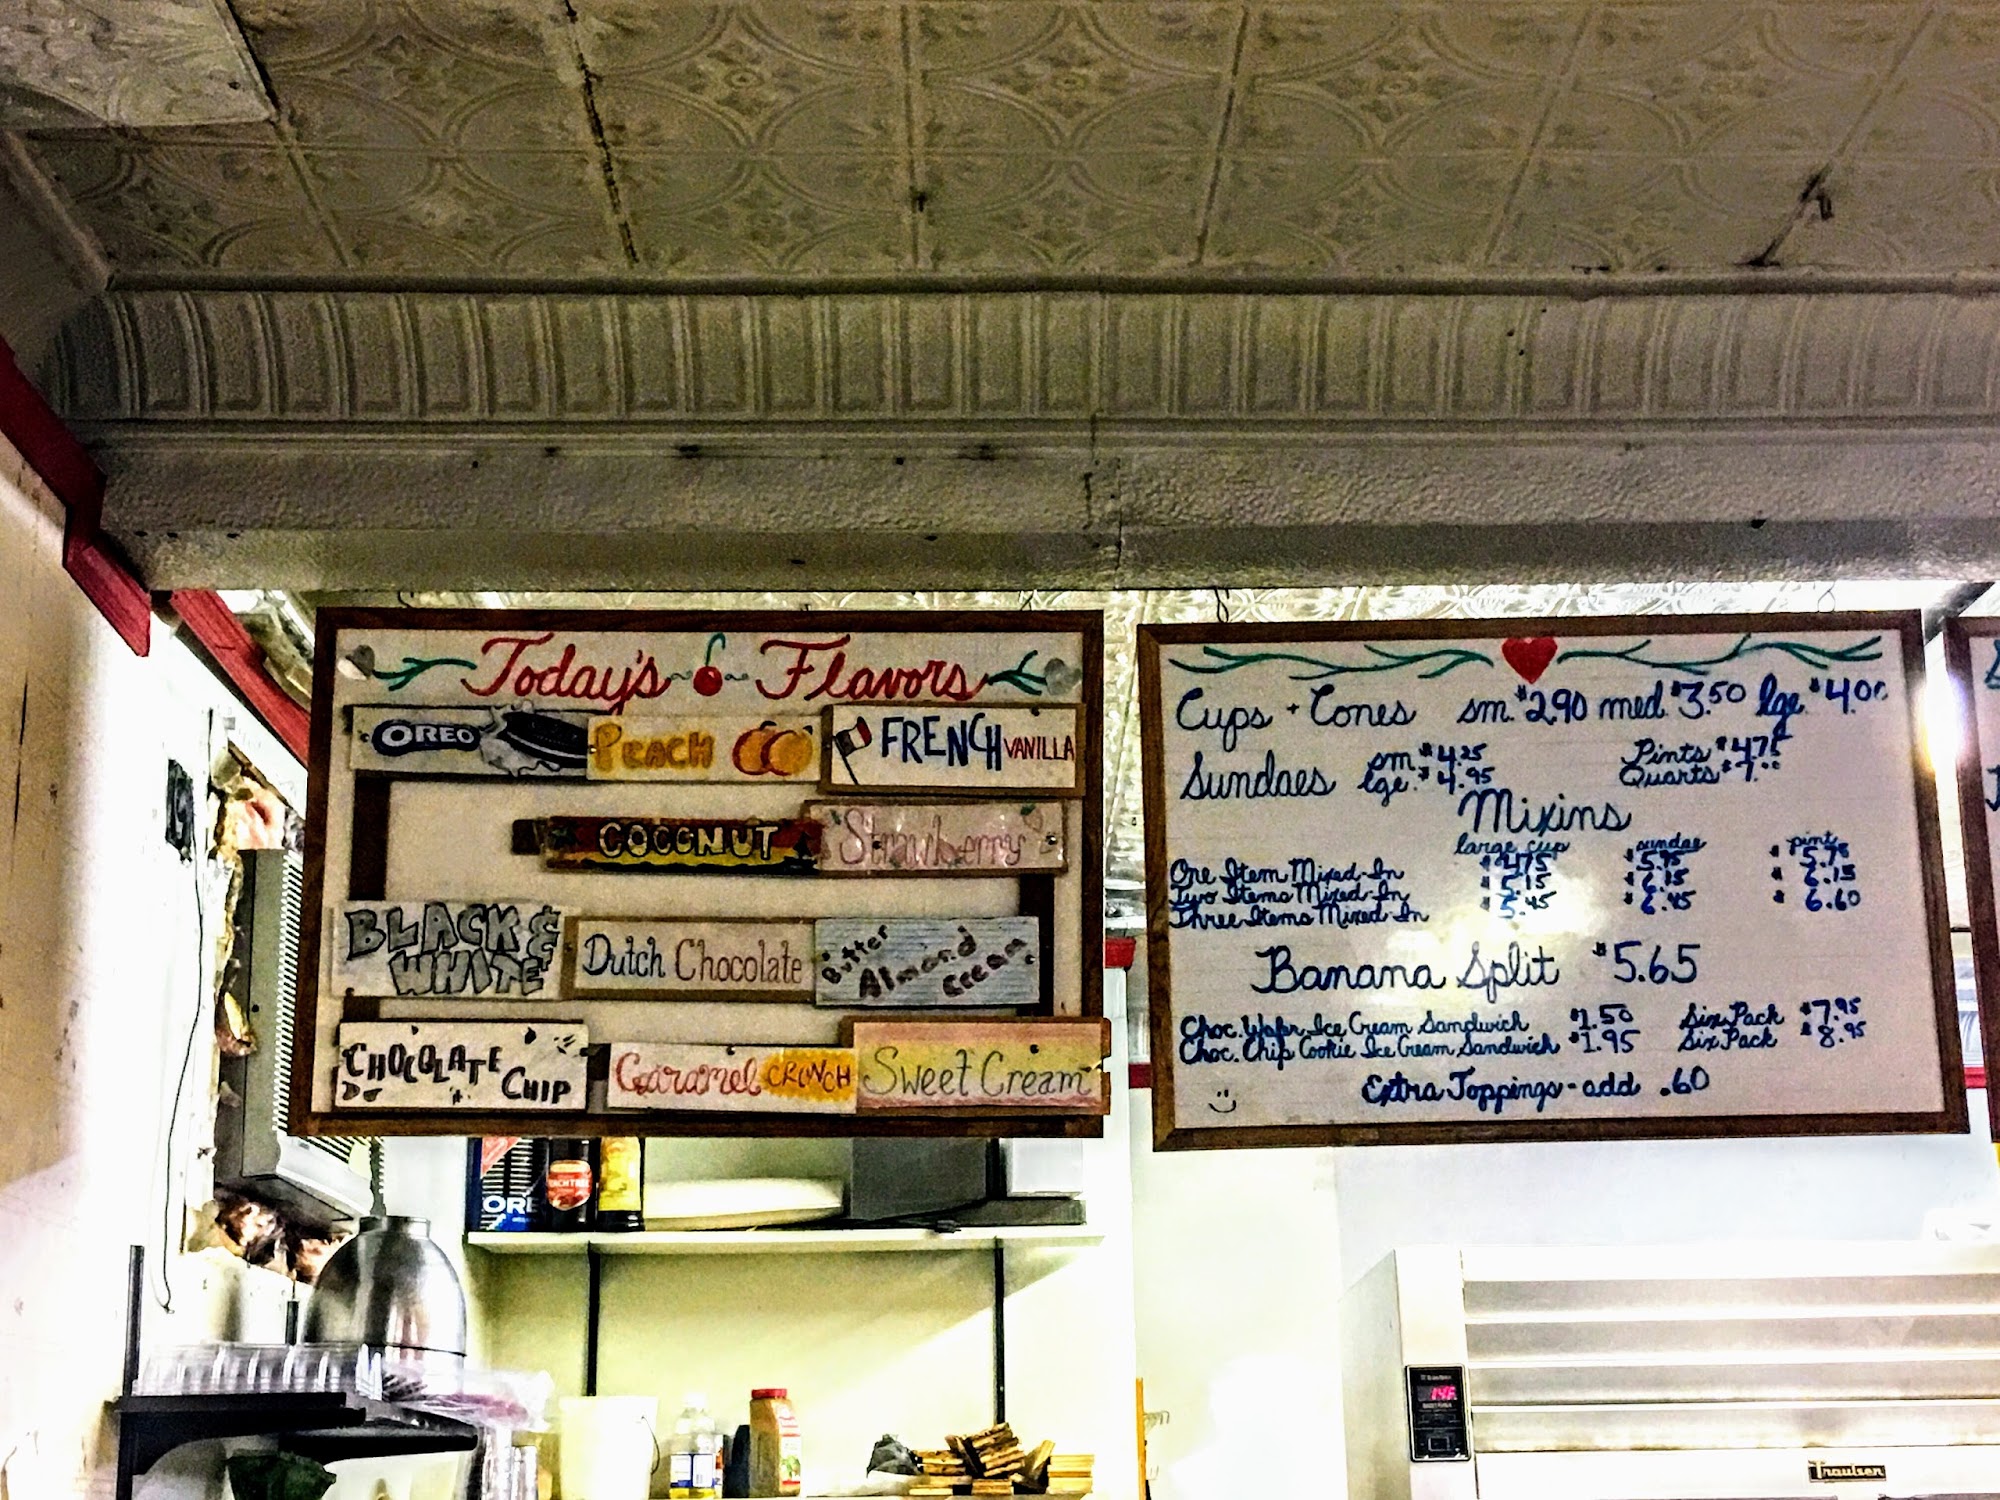 Today's Flavors
OREO
PEACH
FRENCH VANILLA
COCONUT
Strawberry
BLACK &
WHITE
Dutch Chocolate
Butter
Almond
Cream
CHOCOLATE
CHIP
Caramel CRUNCH
Sweet Cream
Cups + Cones sm. $2.90 med. $3.50 lge. $4.00
Sundaes sm $4.25
lge. $4.95
Pints $4.75
Quarts $7.00
Mixins
large cup sundae pint
One Item Mixed-In $4.75 $5.95 $5.75
Two Items Mixed-In $5.15 $6.15 $6.15
Three Items Mixed-In $5.45 $6.45 $6.60
Banana Split $5.65
Choc. Wafr Ice Cream Sandwich $1.50 Six Pack $7.95
Choc. Chip Cookie Ice Cream Sandwich $1.95 Six Pack $8.95
Extra Toppings - add .60
ORE
Traulsen